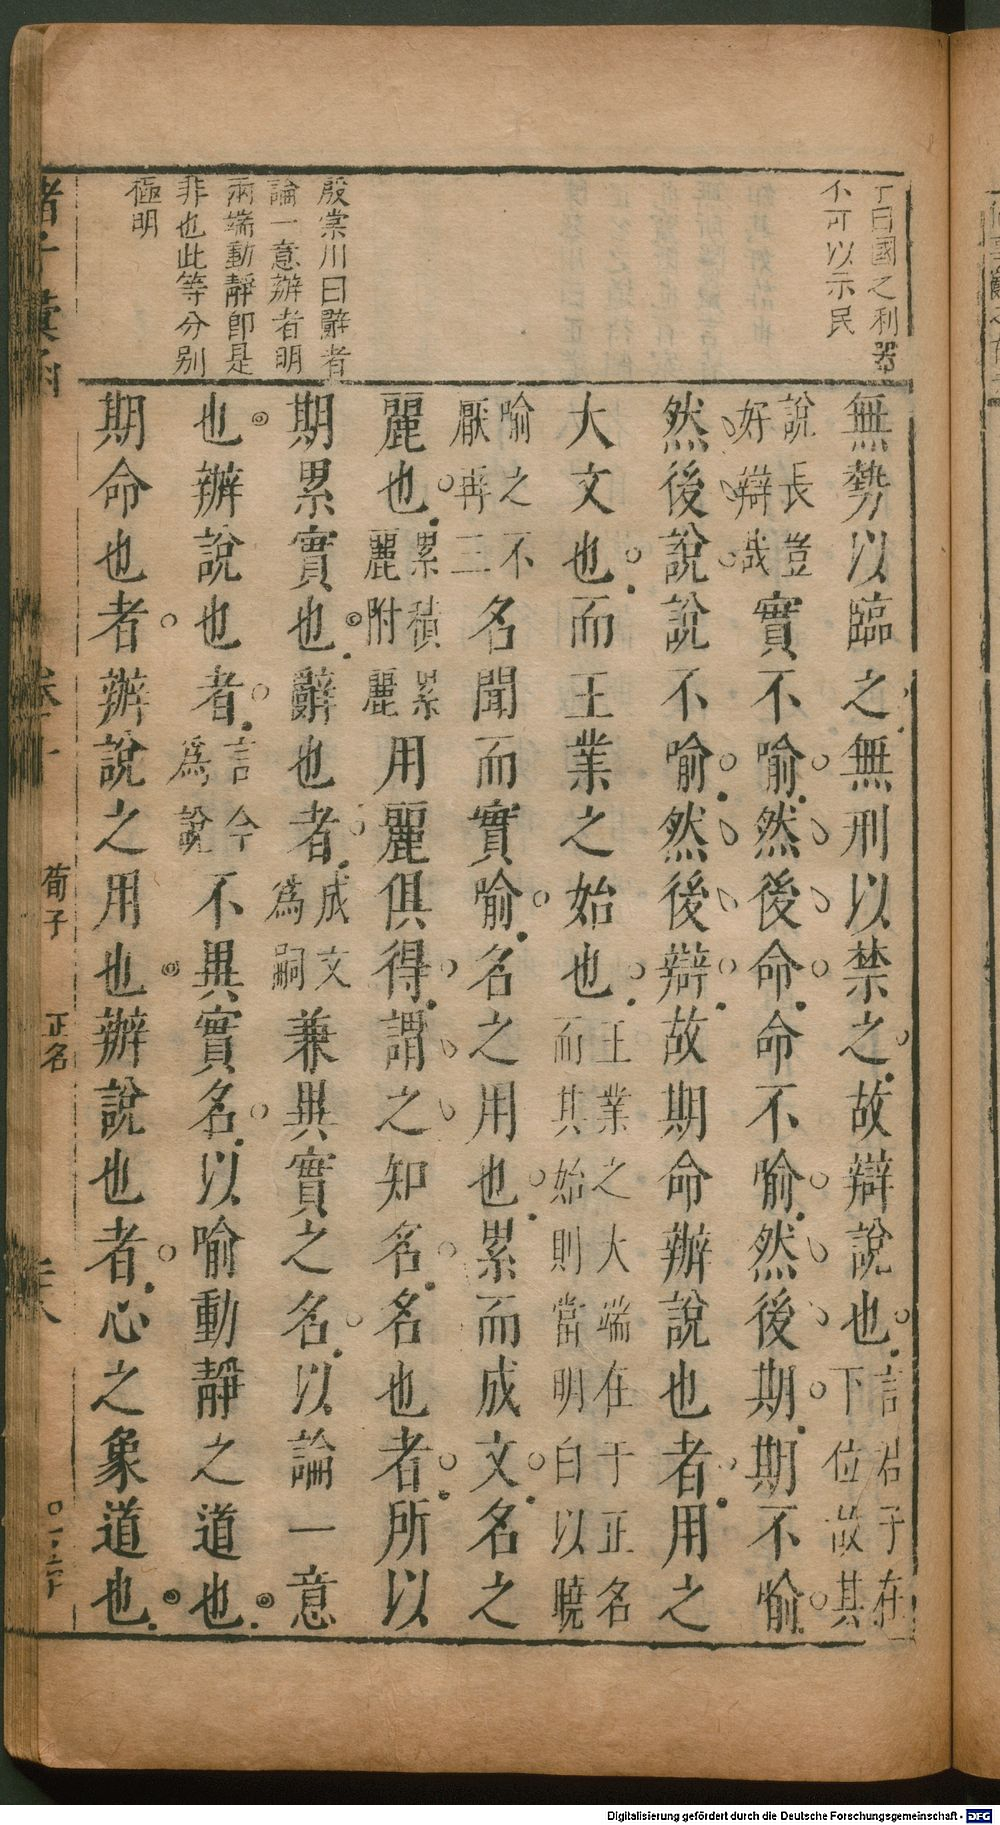 曰國之利器
不可以示民
殷棠川曰辭者
論一意辦者明
兩端動靜即是
非也此等分别
極明
無勢以臨之無刑以禁之故辯說也言君子在下位故其
說長豈好辯哉實不喻然後命命不喻然後期期不喻
然後說說不喻然後辯故期命辦說也者用之
大文也而王業之始也王業之大端在于正名而其始則當明白以曉
喻之不厭再三名聞而實喻名之用也累而成文名之
麗也累積累麗附麗用麗俱得謂之知名名也者所以
期累實也辭也者成文為嗣兼異實之名以論一意
也辦說也者言今為說不異實名以喻動靜之道也
期命也者辦說之用也辦說也者心之象道也
諸子彙函
荀子
正名
Digitalisierung gefördert durch die Deutsche Forschungsgemeinschaft - DFG